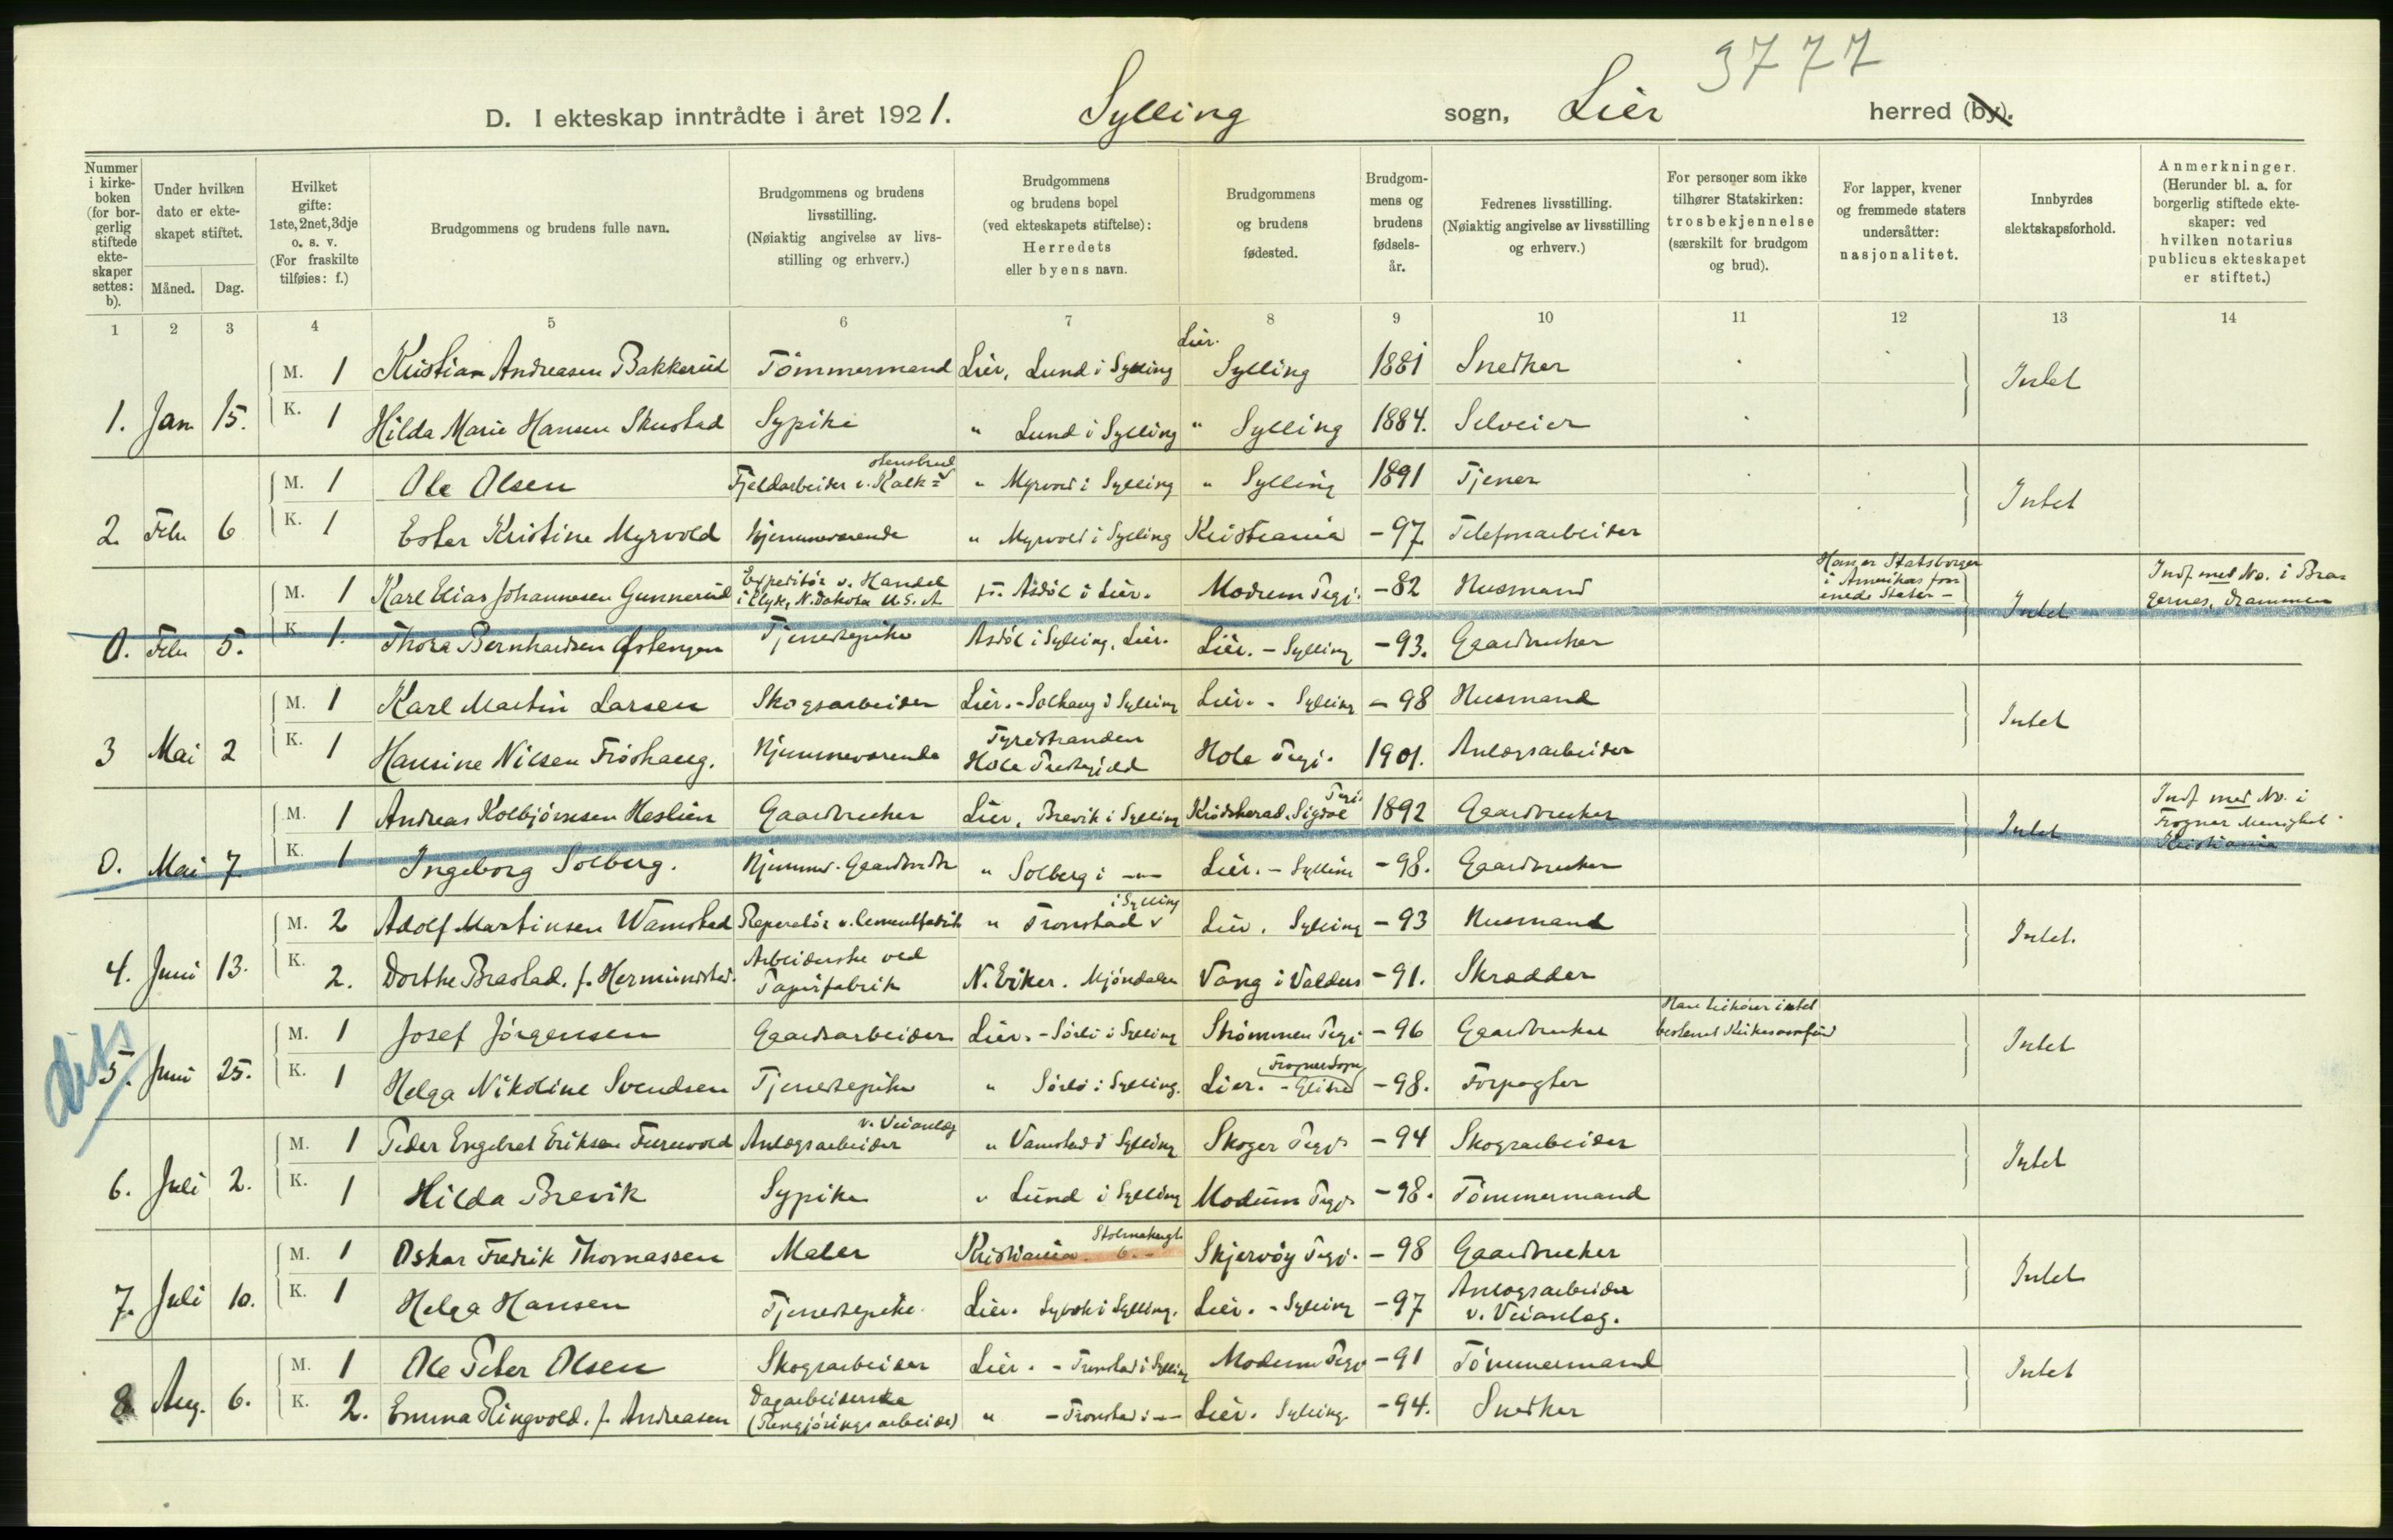 3777
D. I ekteskap inntrådte i året 1921. Sylling sogn, Lier herred (by).
Nummer i kirkeboken (for borgerlig stiftede ekteskaper settes: b).
Under hvilken dato er ekteskapet stiftet.
Måned. Dag.
Hvilket gifte: 1ste, 2net, 3dje o. s. v. (For fraskilte tilføies: f.)
Brudgommens og brudens fulle navn.
Brudgommens og brudens livsstilling. (Nøiaktig angivelse av livsstilling og erhverv.)
Brudgommens og brudens bopel (ved ekteskapets stiftelse): Herredets eller byens navn.
Brudgommens og brudens fødested.
Brudgommens og brudens fødselsår.
Fedrenes livsstilling. (Nøiaktig angivelse av livsstilling og erhverv.)
For personer som ikke tilhører Statskirken: trosbekjennelse (særskilt for brudgom og brud).
For lapper, kvener og fremmede staters undersåtter: nasjonalitet.
Innbyrdes slektskapsforhold.
Anmerkninger. (Herunder bl. a. for borgerlig stiftede ekteskaper: ved hvilken notarius publicus ekteskapet er stiftet.)
1 2 3 4 5 6 7 8 9 10 11 12 13 14
M. 1 Kristian Andreasen Bakkerud Tömmermand Lier, Lund i Sylling Lier. Sylling 1881 Snedker Intet
1. Jan 15. K. 1 Hilda Marie Hansen Skustad Sypike " Lund i Sylling " Sylling 1884. Selveier
M. 1 Ole Olsen Fjeldarbeider v. Kalk= stensbrud " Myrvold i Sylling " Sylling 1891 Tjener Intet
2. Febr 6 K. 1 Ester Kristine Myrvold Hjemmeværende " Myrvold i Sylling Kristiania -97 Telefonarbeider
M. 1 Karl Elias Johannesen Gunnerud Expeditör v. Handel i Clyde, N. Dakota U.S.A. Asdöl i Lier. Modum Pregj. -82 Husmand Han er Statsborger i Amerikas forenede Stater - Intet Indf. med No. i Bragernes, Drammen
0. Febr 5. K. 1. Thora Bernhardsen Østengen Tjenestepike Asdöl i Sylling, Lier. Lier. - Sylling -93. Gaardbruker
M. 1 Karl Martin Larsen Skogsarbeider Lier. - Solhaug i Sylling Lier. - Sylling -98 Husmand Intet
3 Mai 2 K. 1 Hansine Nilsen Fröshaug. Hjemmeværende Tyristranden Hole Prestegjeld Hole Pregj. 1901. Anlægsarbeider
M. 1 Andreas Kolbjörnsen Heslien Gaardbruker Lier, Brevik i Sylling Krödsherad, Sigdal Pregj. 1892 Gaardbruker Intet Indf med No. i Frogner Menighet Kristiania
0. Mai 7 K. 1 Ingeborg Solberg. Hjemmev. Gaardbrdtr " Solberg i -"- Lier. - Sylling -98. Gaardbruker
M. 2 Adolf Martinsen Wamstad Reperatör v. Cementfabrik " Tronstad i Sylling Lier, Sylling -93 Husmand Intet.
4. Juni 13. K. 2. Dorthe Brastad, f. Hermundstad. Arbeiderske ved Papirfabrik N. Eiker. Mjöndalen Vang i Valders -91. Skrædder
dits
M. 1 Josef Jörgensen Gaardsarbeider Lier. - Sörli i Sylling Strömmen Pregj. -96 Gaardbruker Intet
5. Juni 25. K. 1 Helga Nikoline Svendsen Tjenestepike " Sörli i Sylling. Lier. Frognersogn - Glitre -98. Forpagter
M. 1 Peder Engebret Eriksen Furuvold Anlægsarbeider v. Veianlæg " Vamstad i Sylling Skoger Pregj. -94 Skogsarbeider Intet
6. Juli 2. K. 1 Hilda Brevik Sypike " Lund i Sylling Modum Pregj. -98. Tömmermand
M. 1 Oskar Fredrik Thomassen Maler Kristiania. Stolmakergt. 6.- Skjervöy Pregj. -98 Gaardbruker Intet
7. Juli 10. K. 1 Helga Hansen Tjenestepike. Lier. i Sylling. Lier. - Sylling -97 Anlægsarbeider v. Veianlæg.
M. 1 Ole Peter Olsen Skogsarbeider Lier. - Tronstad i Sylling Modum Pregj. -91 Tömmermand Intet
8 Aug. 6. K. 2. Emma Ringvold, f. Andreasen Dagarbeiderske (Rengjöringsarbeide) " - Tronstad i -"- Lier. Sylling. -94. Snedker